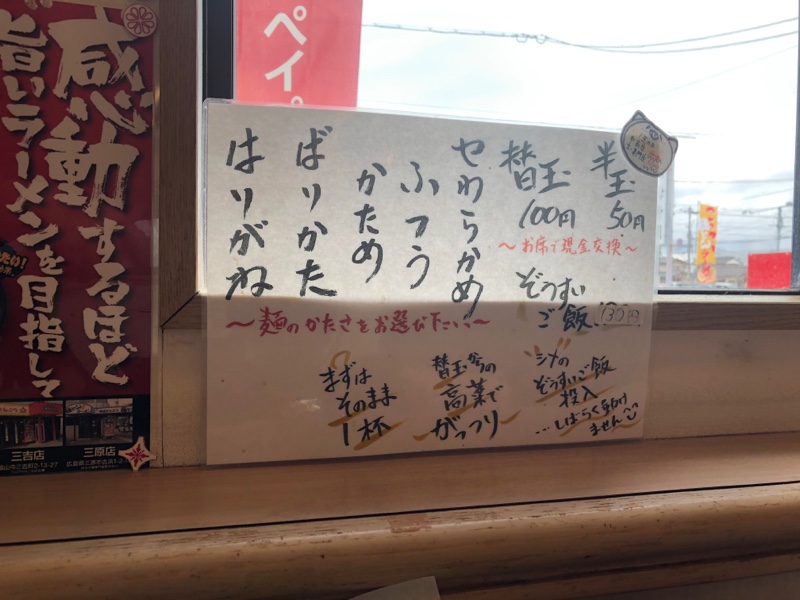 感動するほど
旨いラーメンを目指して
三吉店
三原店
ペイ
半玉
50円
替玉
100円
〜お席で現金交換〜
ぞうすい
ご飯 130円
やわらかめ
ふつう
かため
ばりかた
はりがね
〜麺のかたさをお選び下さい〜
まずは
そのまま
1杯
替玉からの
高菜で
がっつり
シメの
ぞうすいご飯
投入
…しばらく動け
ません